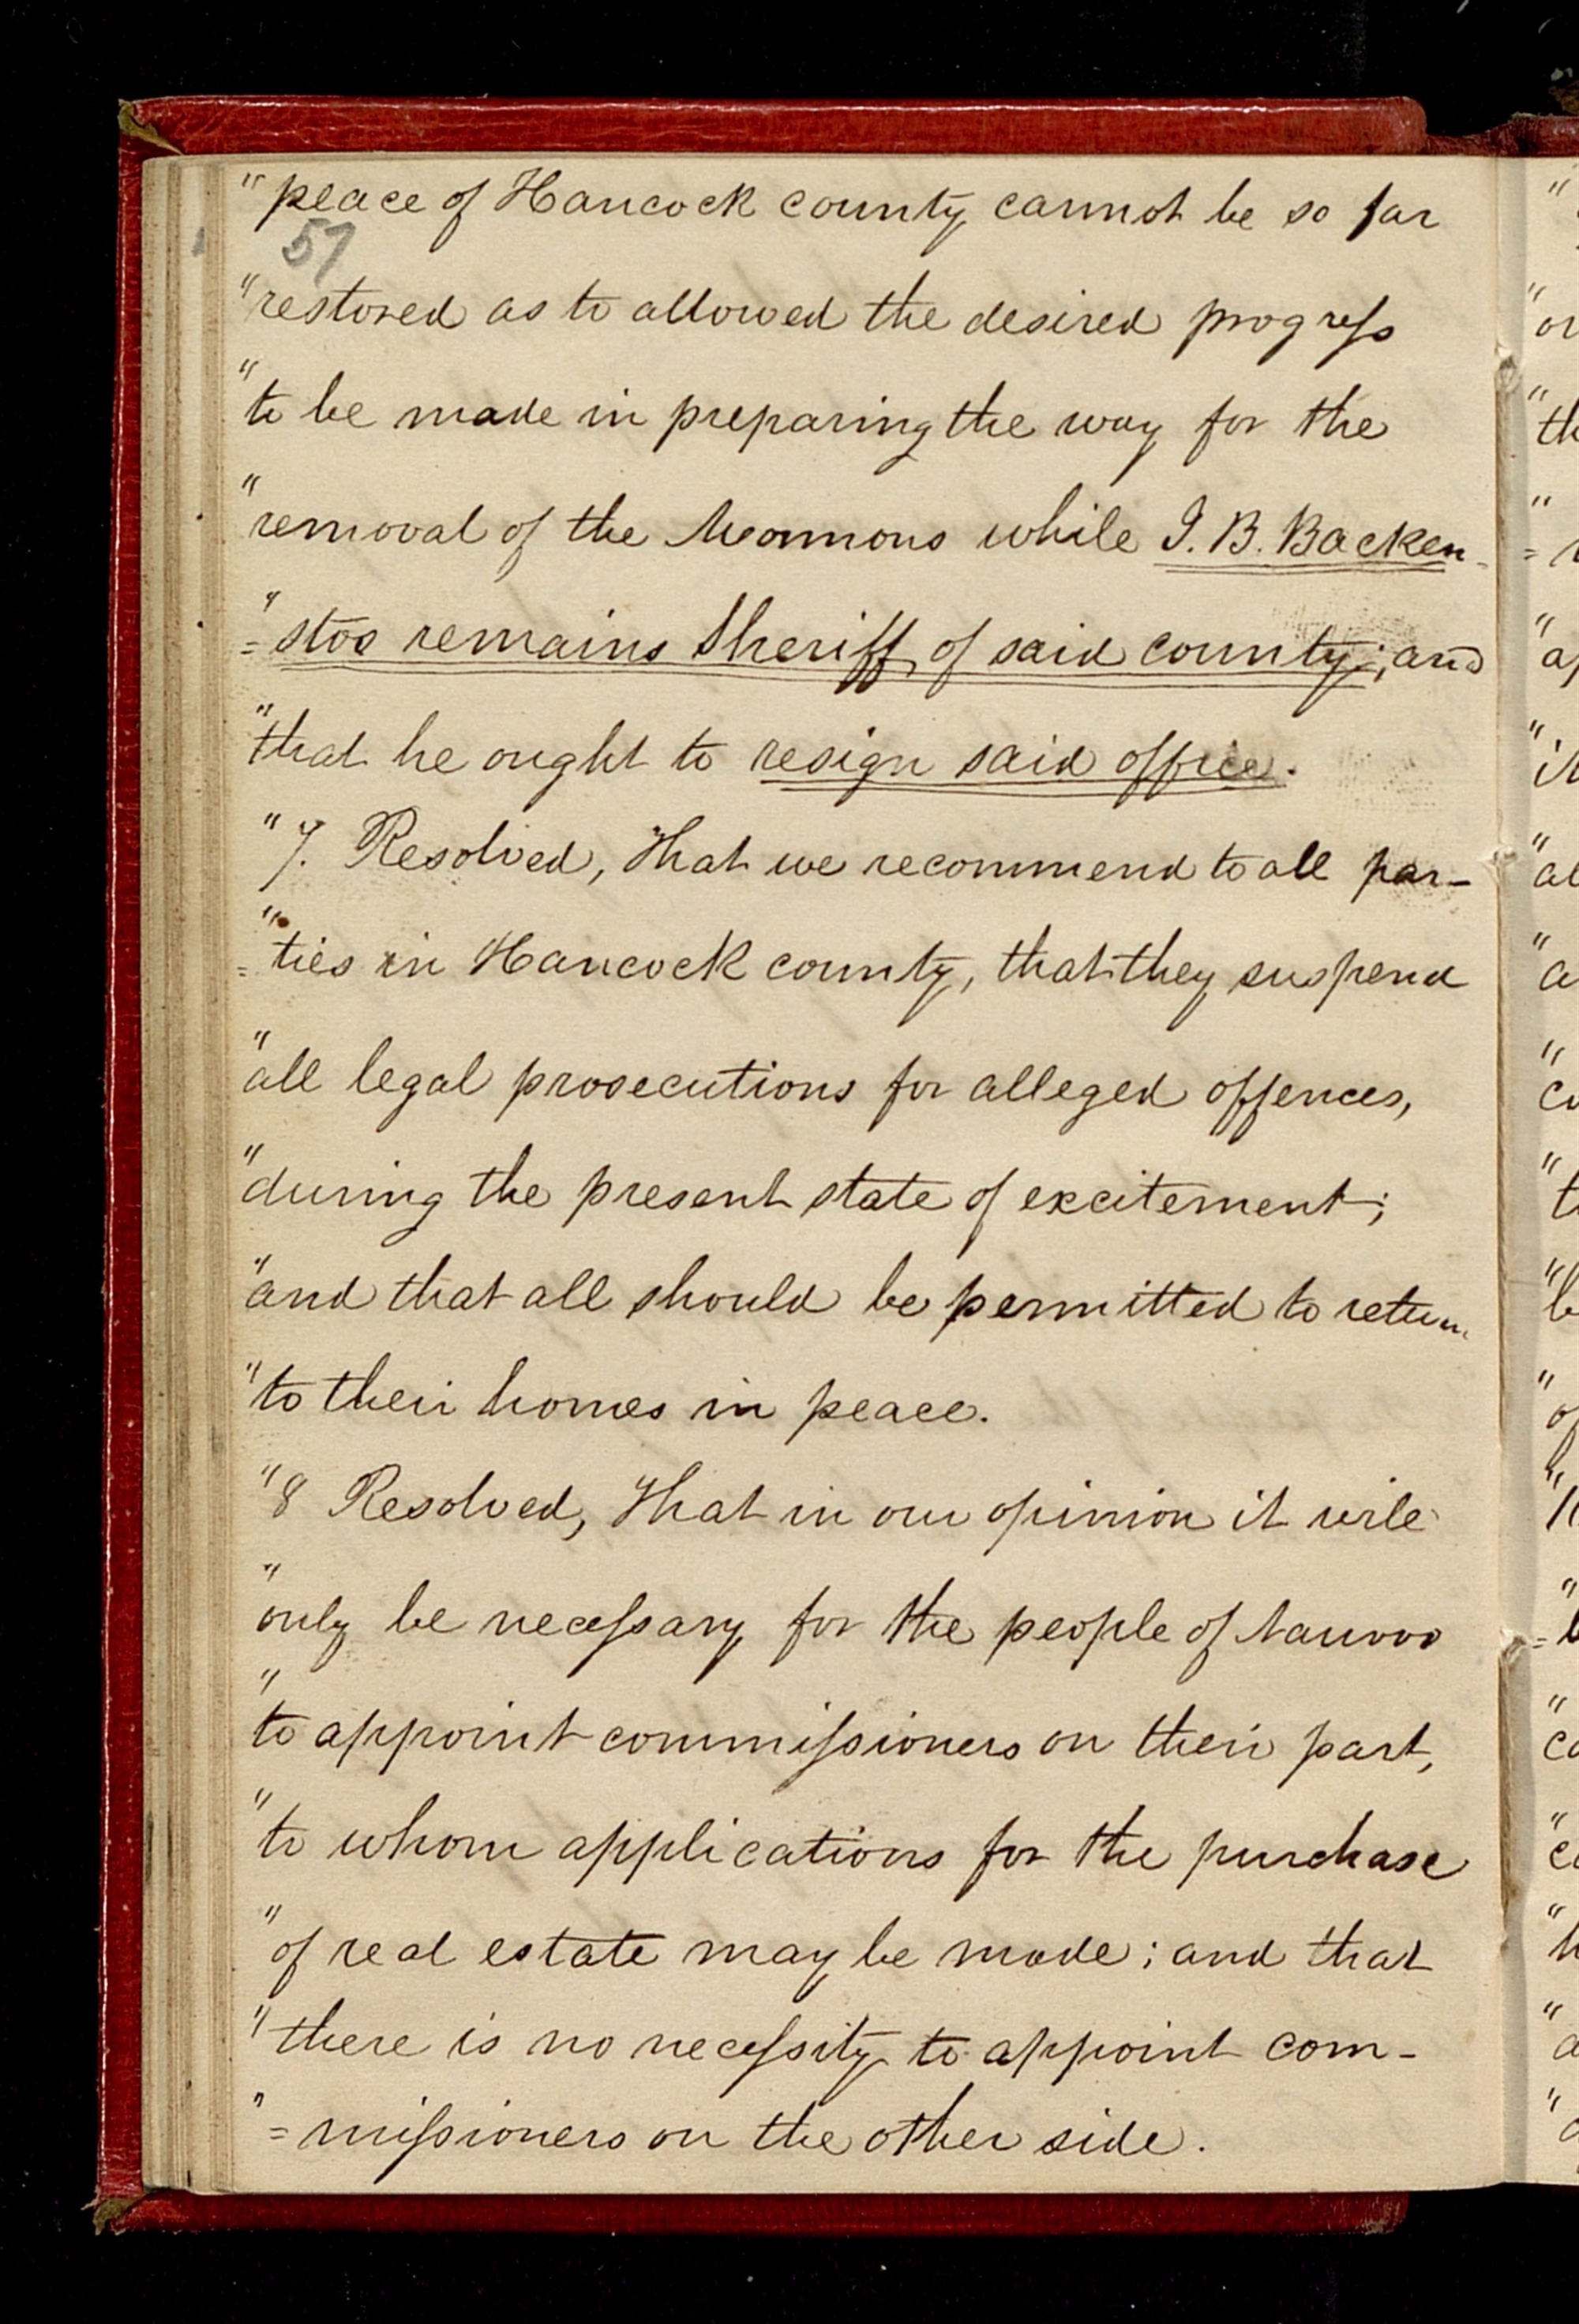 " peace of Hancock county cannot be so far
57
" restored as to allowed the desired progress
" to be made in preparing the way for the
" removal of the Mormons while J. B. Backen-
" = stos remains Sheriff of said county; and
" that he ought to resign said office.
" 7. Resolved, That we recommend to all par-
" = ties in Hancock county, that they suspend
" all legal prosecutions for alleged offences,
" during the present state of excitement;
" and that all should be permitted to return
" to their homes in peace.
" 8 Resolved, That in our opinion it will
" only be necessary for the people of Nauvoo
" to appoint commissioners on their part,
" to whom applications for the purchase
" of real estate may be made; and that
" there is no necessity to appoint com-
" = missioners on the other side.